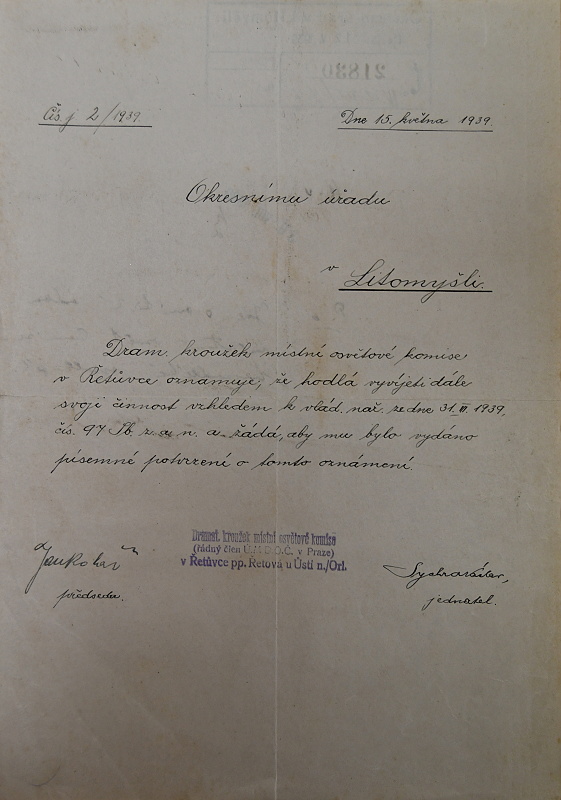 Čís j 2/1939.
Dne 15. května 1939.
Okresnímu úřadu
v
Litomyšli.
Dram. kroužek místní osvětové komise
v Řetůvce oznamuje, že hodlá vyvíjeti dále
svoji činnost vzhledem k vlád. nař. ze dne 31. III. 1939,
čís. 97 Sb. z. a n. a žádá, aby mu bylo vydáno
písemné potvrzení o tomto oznámení.
Dramat. kroužek místní osvětové komise
(řádný člen Ú.M.D.O.Č. v Praze)
v Řetůvce pp. Řetová u Ústí n./Orl.
předseda.
jednatel.
21830